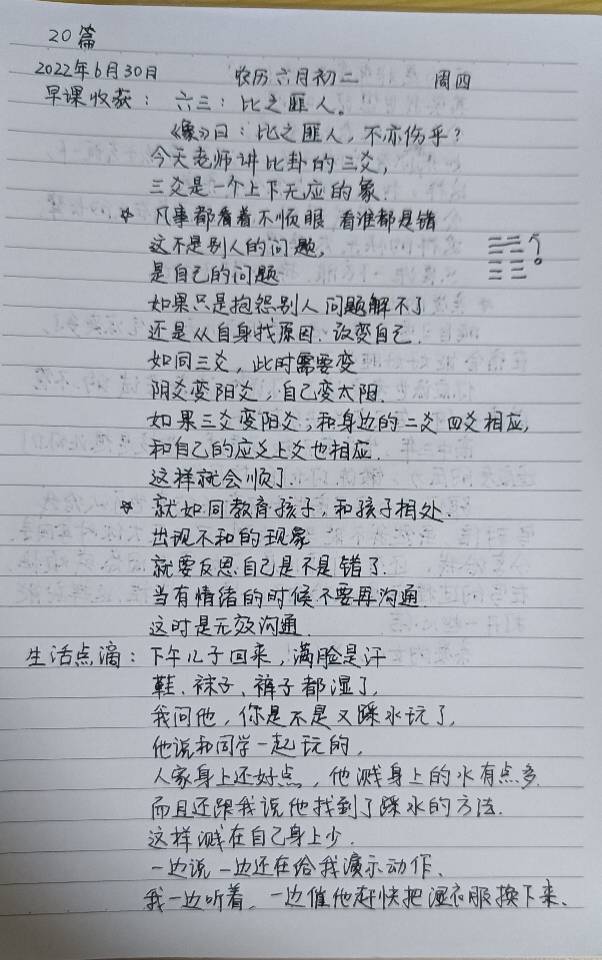 20篇
2022年6月30日 农历六月初二 周四
早课收获：六三：比之匪人。
《象》曰：比之匪人，不亦伤乎？
今天老师讲比卦的三爻，
三爻是一个上下无应的象．
☆ 凡事都看着不顺眼 看谁都是错
这不是别人的问题，
是自己的问题
如果只是抱怨别人 问题解不了
还是从自身找原因．改变自己．
如同三爻，此时需要变
阴爻变阳爻，自己变太阳．
如果三爻变阳爻，和身边的二爻 四爻相应，
和自己的应爻上爻也相应．
这样就会顺了．
☆ 就如同教育孩子，和孩子相处．
出现不和的现象
就要反思自己是不是错了．
当有情绪的时候不要再沟通
这时是无效沟通．
生活点滴：下午儿子回来，满脸是汗
鞋、袜子、裤子都湿了，
我问他，你是不是又踩水玩了，
他说和同学一起玩的，
人家身上还好点，他溅身上的水有点多．
而且还跟我说他找到了踩水的方法．
这样溅在自己身上少．
一边说一边还在给我演示动作、
我一边听着，一边催他赶快把湿衣服换下来、